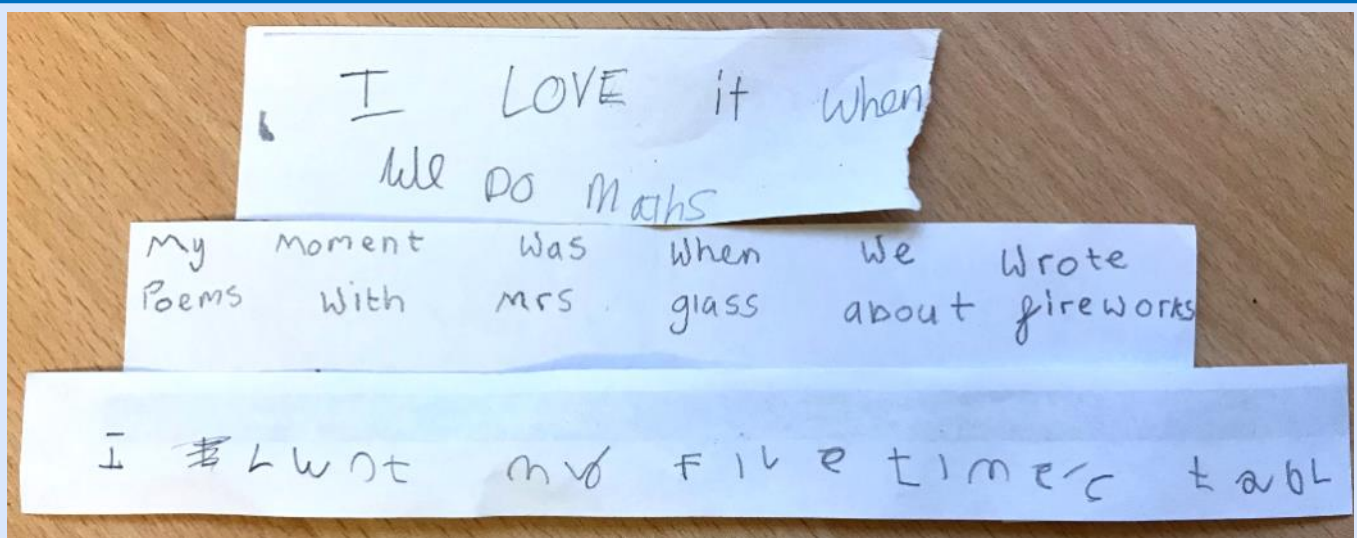 I LOVE it when
We DO Maths
My Moment Was When We Wrote
Poems With Mrs. glass about fireworks
I Lwnt my File times tabL